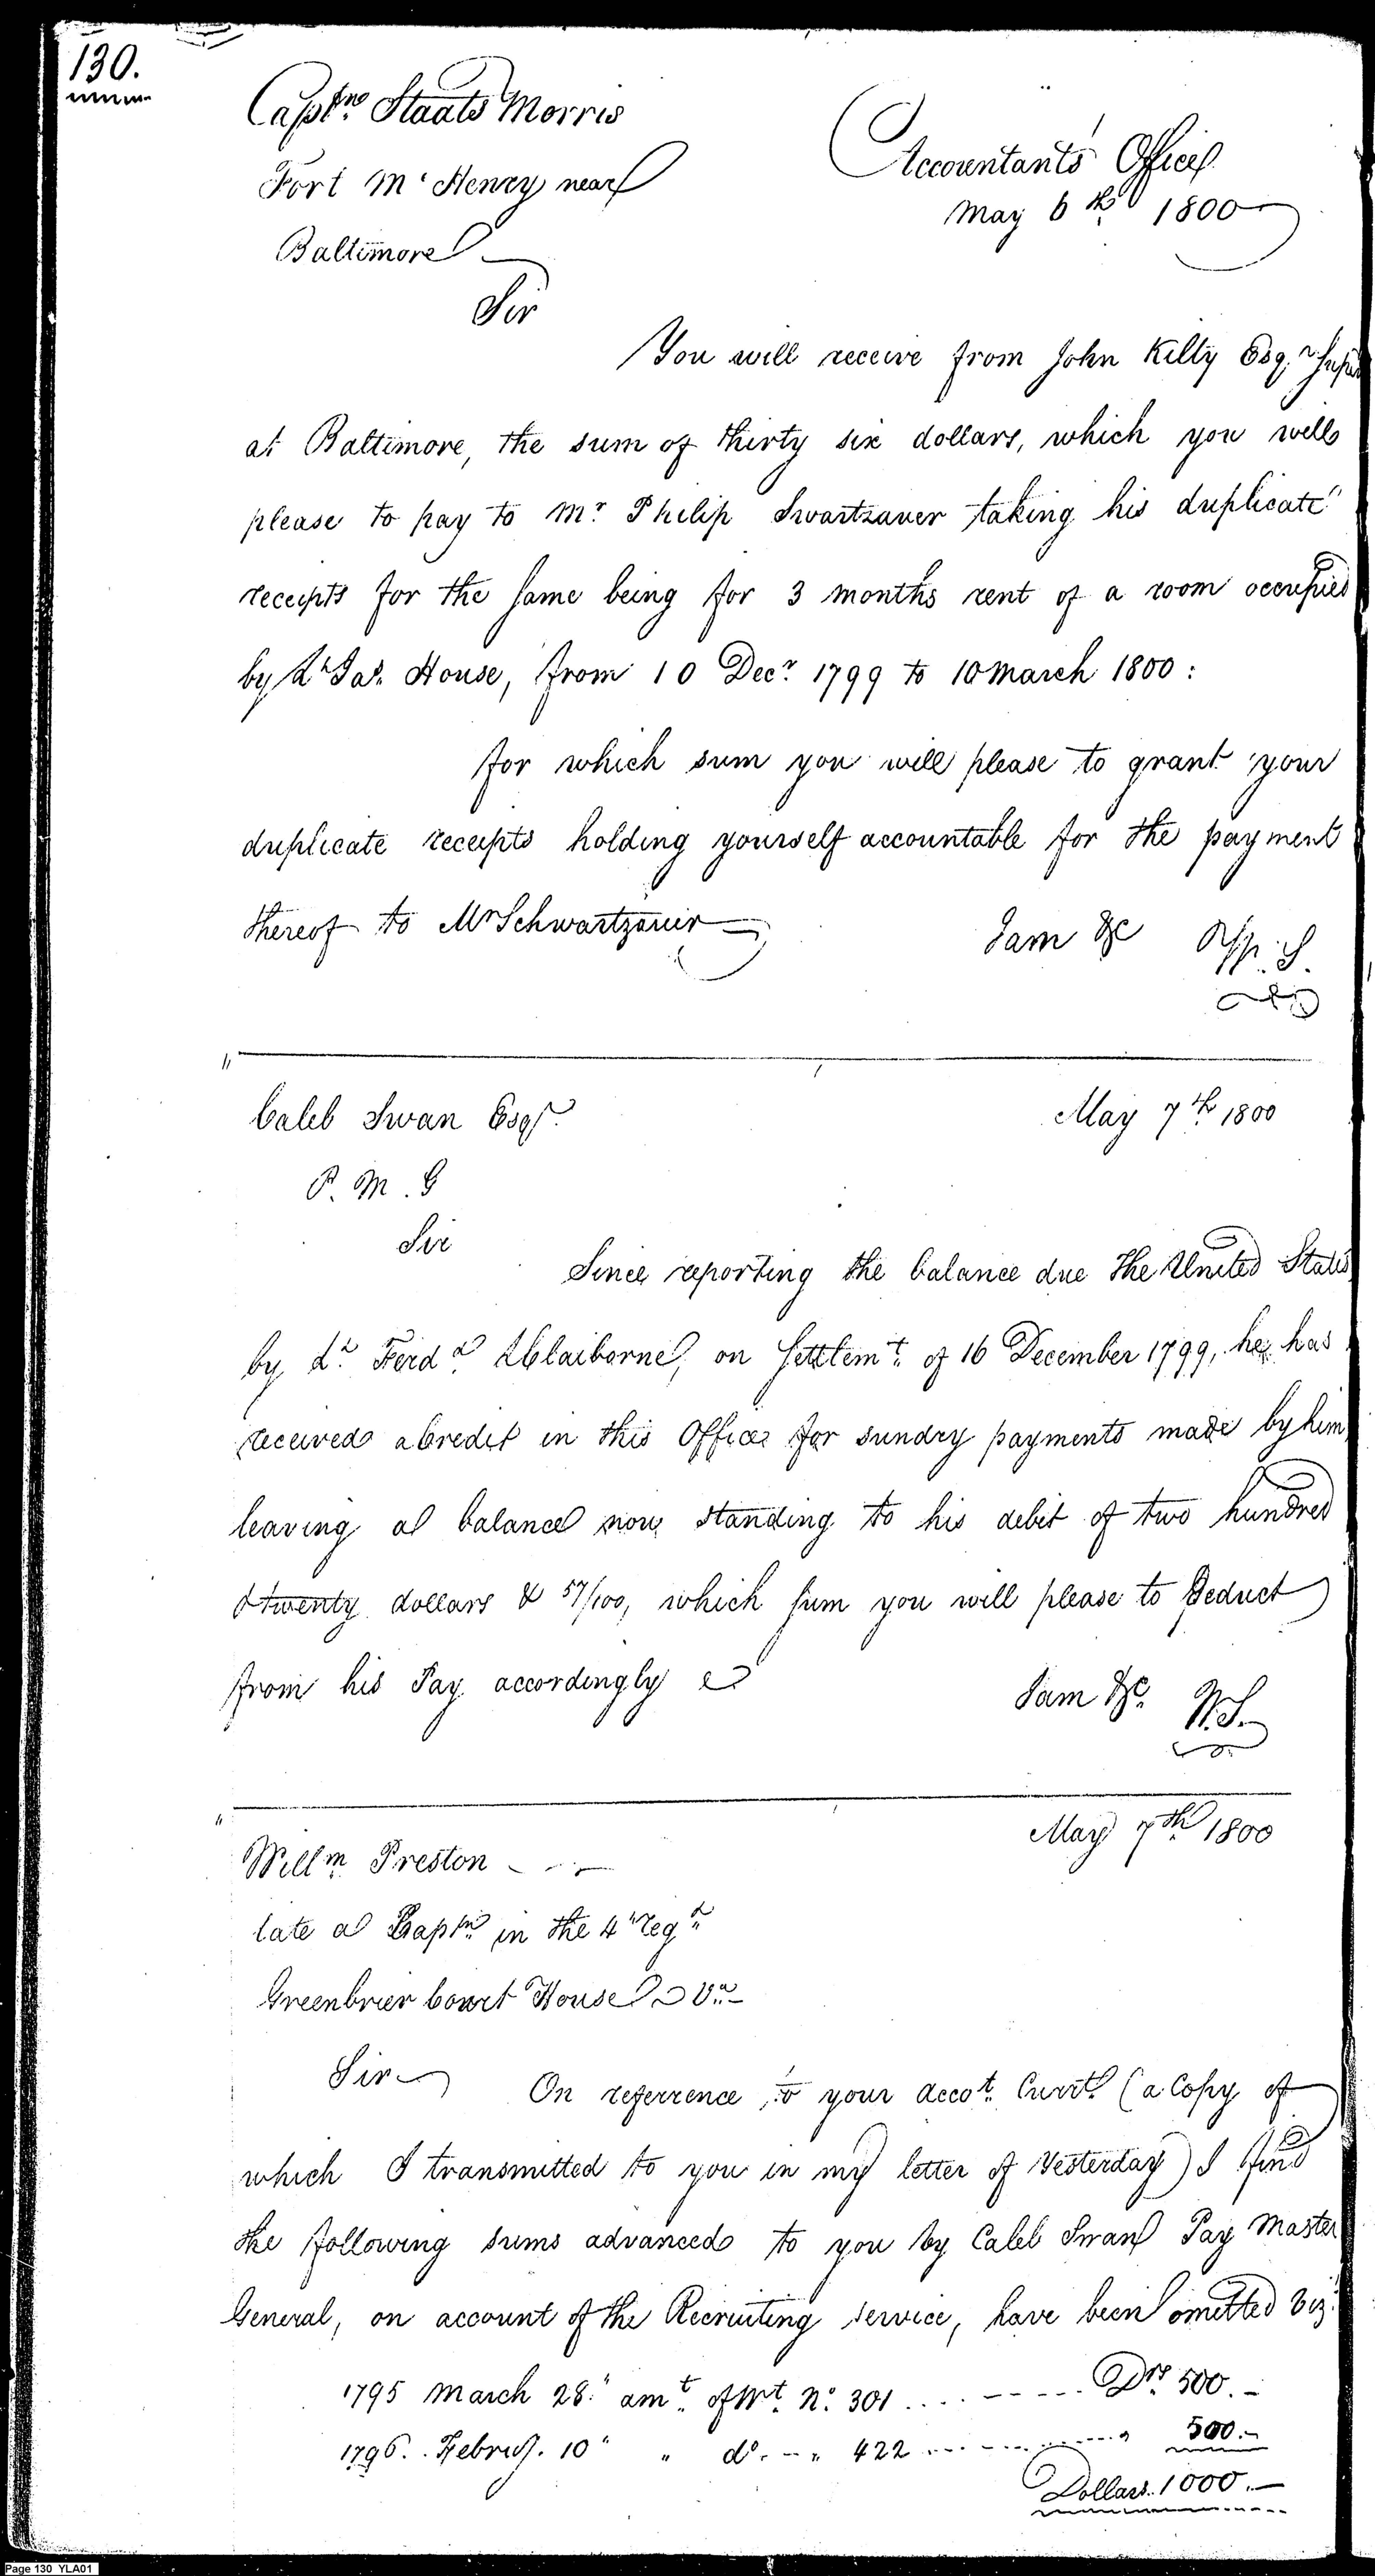 130.
Captn. Staats Morris
Accountants Office
Fort Mc Henry near
May 6th. 1800
Baltimore
Sir
You will receive from John Kilty Esqr.
at Baltimore, the sum of thirty six dollars, which you will
please to pay to Mr. Philip Swartzauer taking his duplicate
receipts for the same being for 3 months rent of a room occupied
by Lt. Jas. House, from 10 Decr. 1799 to 10 March 1800 :
for which sum you will please to grant your
duplicate receipts holding yourself accountable for the payment
thereof to Mr Schwartzauir
I am &c
Caleb Swan Esqr.
May 7th. 1800
P. M. G
Sir
Since reporting the balance due the United States
by Lt. Ferdd. L Claiborne, on Settlemt. of 16 December 1799, he has
received a Credit in this Office for sundry payments made by him
leaving a balance now standing to his debit of two hundred
& twenty dollars & 57/100, which sum you will please to deduct
from his Pay accordingly
I am &c. W.S.
May 7th. 1800
Willm. Preston
late a Captn. in the 4th regt.
Greenbrier Court House Va.
Sir
On referrence to your accot. Currt. (a Copy of
which I transmitted to you in my letter of Yesterday) I find
the following sums advanced to you by Caleb Swan Pay Master
General, on account of the Recruiting service, have been omitted viz.
1795 March 28. " amt. of Wt. No. 301 .... ----- Drs. 500. -
1796. Februy. 10 " " do. - " 422 ............ " 500. -
Dollars. 1000. -
Page 130 YLA01